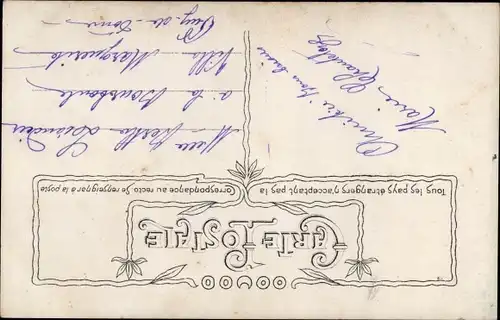 CARTE POSTALE
Tous les pays étrangers n'acceptent pas la
Correspondance au recto Se renseigner à la poste
Amitiés
Marie
Melle
à la Bourboule
Villa Marguerite
Puy-de-Dôme